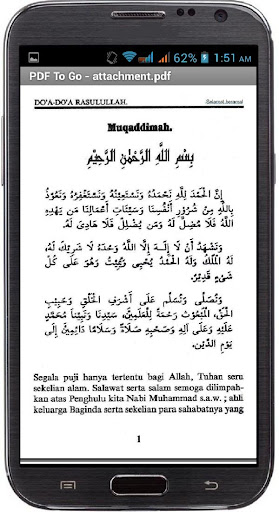 62%
1:51 AM
PDF To Go - attachment.pdf
DO'A-DO'A RASULULLAH.
Muqaddimah.
بِسْمِ اللَّهِ الرَّحْمٰنِ الرَّحِيْمِ
إِنَّ الْحَمْدَ لِلَّهِ نَحْمَدُهُ وَنَسْتَعِيْنُهُ وَنَسْتَغْفِرُهُ وَنَعُوْذُ
بِاللَّهِ مِنْ شُرُوْرِ أَنْفُسِنَا وَسَيِّئَاتِ أَعْمَالِنَا مَنْ يَهْدِهِ
اللَّهُ فَلَا مُضِلَّ لَهُ وَمَنْ يُضْلِلْ فَلَا هَادِىَ لَهُ.
وَنَشْهَدُ أَنْ لَا إِلٰهَ إِلَّا اللَّهُ وَحْدَهُ لَا شَرِيْكَ لَهُ،
لَهُ الْمُلْكُ وَلَهُ الْحَمْدُ يُحْيِى وَيُمِيْتُ وَهُوَ عَلَى كُلِّ
شَىْءٍ قَدِيْرٌ.
وَنُصَلِّى وَنُسَلِّمُ عَلَى أَشْرَفِ الْخَلْقِ وَحَبِيْبِ
الْحَقِّ، الْمَبْعُوْثِ رَحْمَةً لِلْعٰلَمِيْنَ، سَيِّدِنَا وَنَبِيِّنَا مُحَمَّدٍ
عَلَيْهِ وَعَلَى آلِهِ وَصَحْبِهِ صَلَاةً وَسَلَامًا دَائِمَيْنِ إِلَى
يَوْمِ الدِّيْنِ.
Segala puji hanya tertentu bagi Allah, Tuhan seru
sekelian alam. Salawat serta salam semoga dilimpah-
kan atas Penghulu kita Nabi Muhammad s.a.w. ; ahli
keluarga Baginda serta sekelian para sahabatnya yang
1